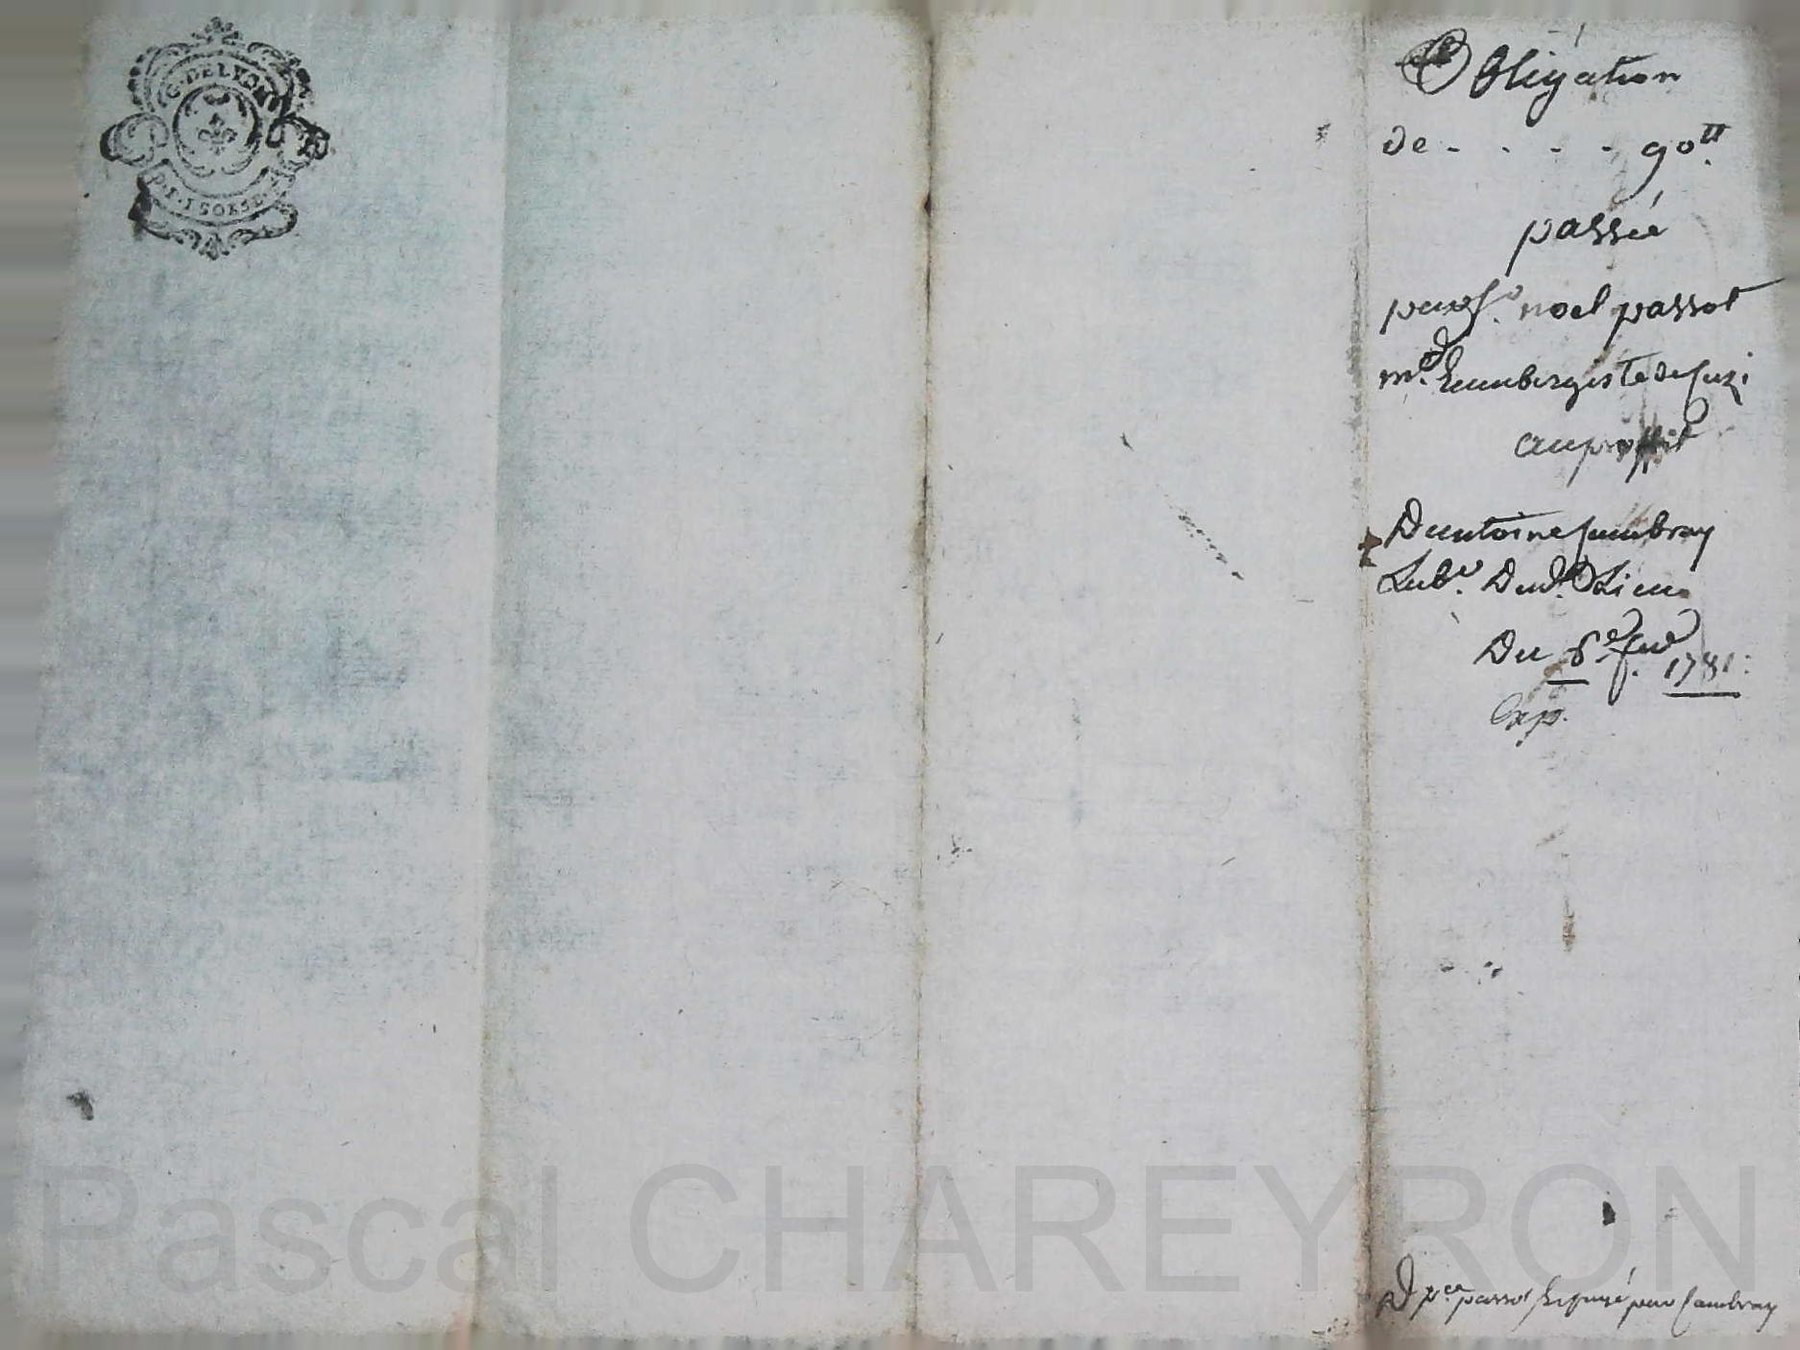 G. DE LYON
D. I. SOL 8 D.
Obligation
de - - - - 90ᵗᵗ
passée
par sʳ. noel passot
mᵈ. & aubergiste de
au proffit
D'antoine Cambray
Labʳ. Dud. Lieu
Du 6ᵉ. fevʳ. 1781.
Exp.
passot par Cambray
Pascal CHAREYRON